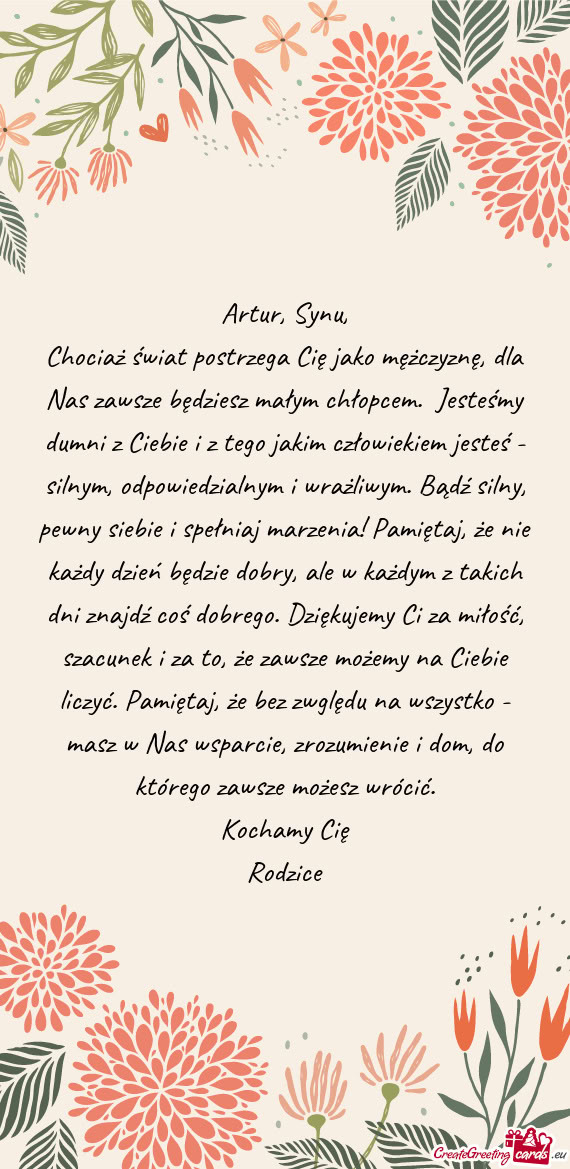 Artur, Synu,
Chociaż świat postrzega Cię jako mężczyznę, dla
Nas zawsze będziesz małym chłopcem. Jesteśmy
dumni z Ciebie i z tego jakim człowiekiem jesteś -
silnym, odpowiedzialnym i wrażliwym. Bądź silny,
pewny siebie i spełniaj marzenia! Pamiętaj, że nie
każdy dzień będzie dobry, ale w każdym z takich
dni znajdź coś dobrego. Dziękujemy Ci za miłość,
szacunek i za to, że zawsze możemy na Ciebie
liczyć. Pamiętaj, że bez zwględu na wszystko -
masz w Nas wsparcie, zrozumienie i dom, do
którego zawsze możesz wrócić.
Kochamy Cię
Rodzice
CreateGreeting cards .eu